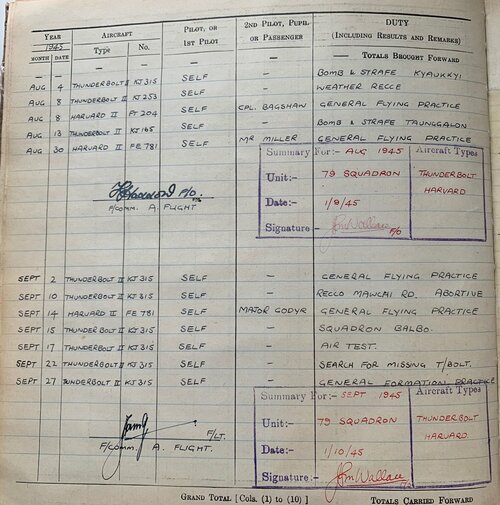 YEAR AIRCRAFT PILOT, OR 2ND PILOT, PUPIL DUTY
1945 1ST PILOT OR PASSENGER (INCLUDING RESULTS AND REMARKS)
MONTH DATE Type No.
— — — — — — TOTALS BROUGHT FORWARD
AUG 4 THUNDERBOLT II KJ 315 SELF — BOMB & STRAFE KYAUKKYI
AUG 8 THUNDERBOLT II KJ 253 SELF — WEATHER RECCE
AUG 8 HARVARD II FT 204 SELF CPL. BAGSHAW GENERAL FLYING PRACTICE
AUG 13 THUNDERBOLT II KJ 165 SELF — BOMB & STRAFE TAUNGGALON
AUG 30 HARVARD II FE 781 SELF MR MILLER GENERAL FLYING PRACTICE
Summary For:- AUG 1945 Aircraft Types
Unit:- 79 SQUADRON THUNDERBOLT
HARVARD
Date:- 1/9/45
Signature - JPMWallace F/O
F/O.
F/COMM. A. FLIGHT
SEPT 2 THUNDERBOLT II KJ 315 SELF — GENERAL FLYING PRACTICE
SEPT 10 THUNDERBOLT II KJ 315 SELF — RECCO MAWCHI RD. ABORTIVE
SEPT 14 HARVARD II FE 781 SELF MAJOR GODYR GENERAL FLYING PRACTICE
SEPT 15 THUNDERBOLT II KJ 315 SELF — SQUADRON BALBO.
SEPT 17 THUNDERBOLT II KJ 315 SELF — AIR TEST.
SEPT 22 THUNDERBOLT II KJ 315 SELF — SEARCH FOR MISSING T/BOLT.
SEPT 27 THUNDERBOLT II KJ 315 SELF — GENERAL FORMATION PRACTICE
Summary For:- SEPT 1945 Aircraft Types
Unit:- 79 SQUADRON THUNDERBOLT
HARVARD
Date:- 1/10/45
Signature:- JPMWallace
F/LT.
F/COMM. A. FLIGHT.
GRAND TOTAL [Cols. (1) to (10)] TOTALS CARRIED FORWARD